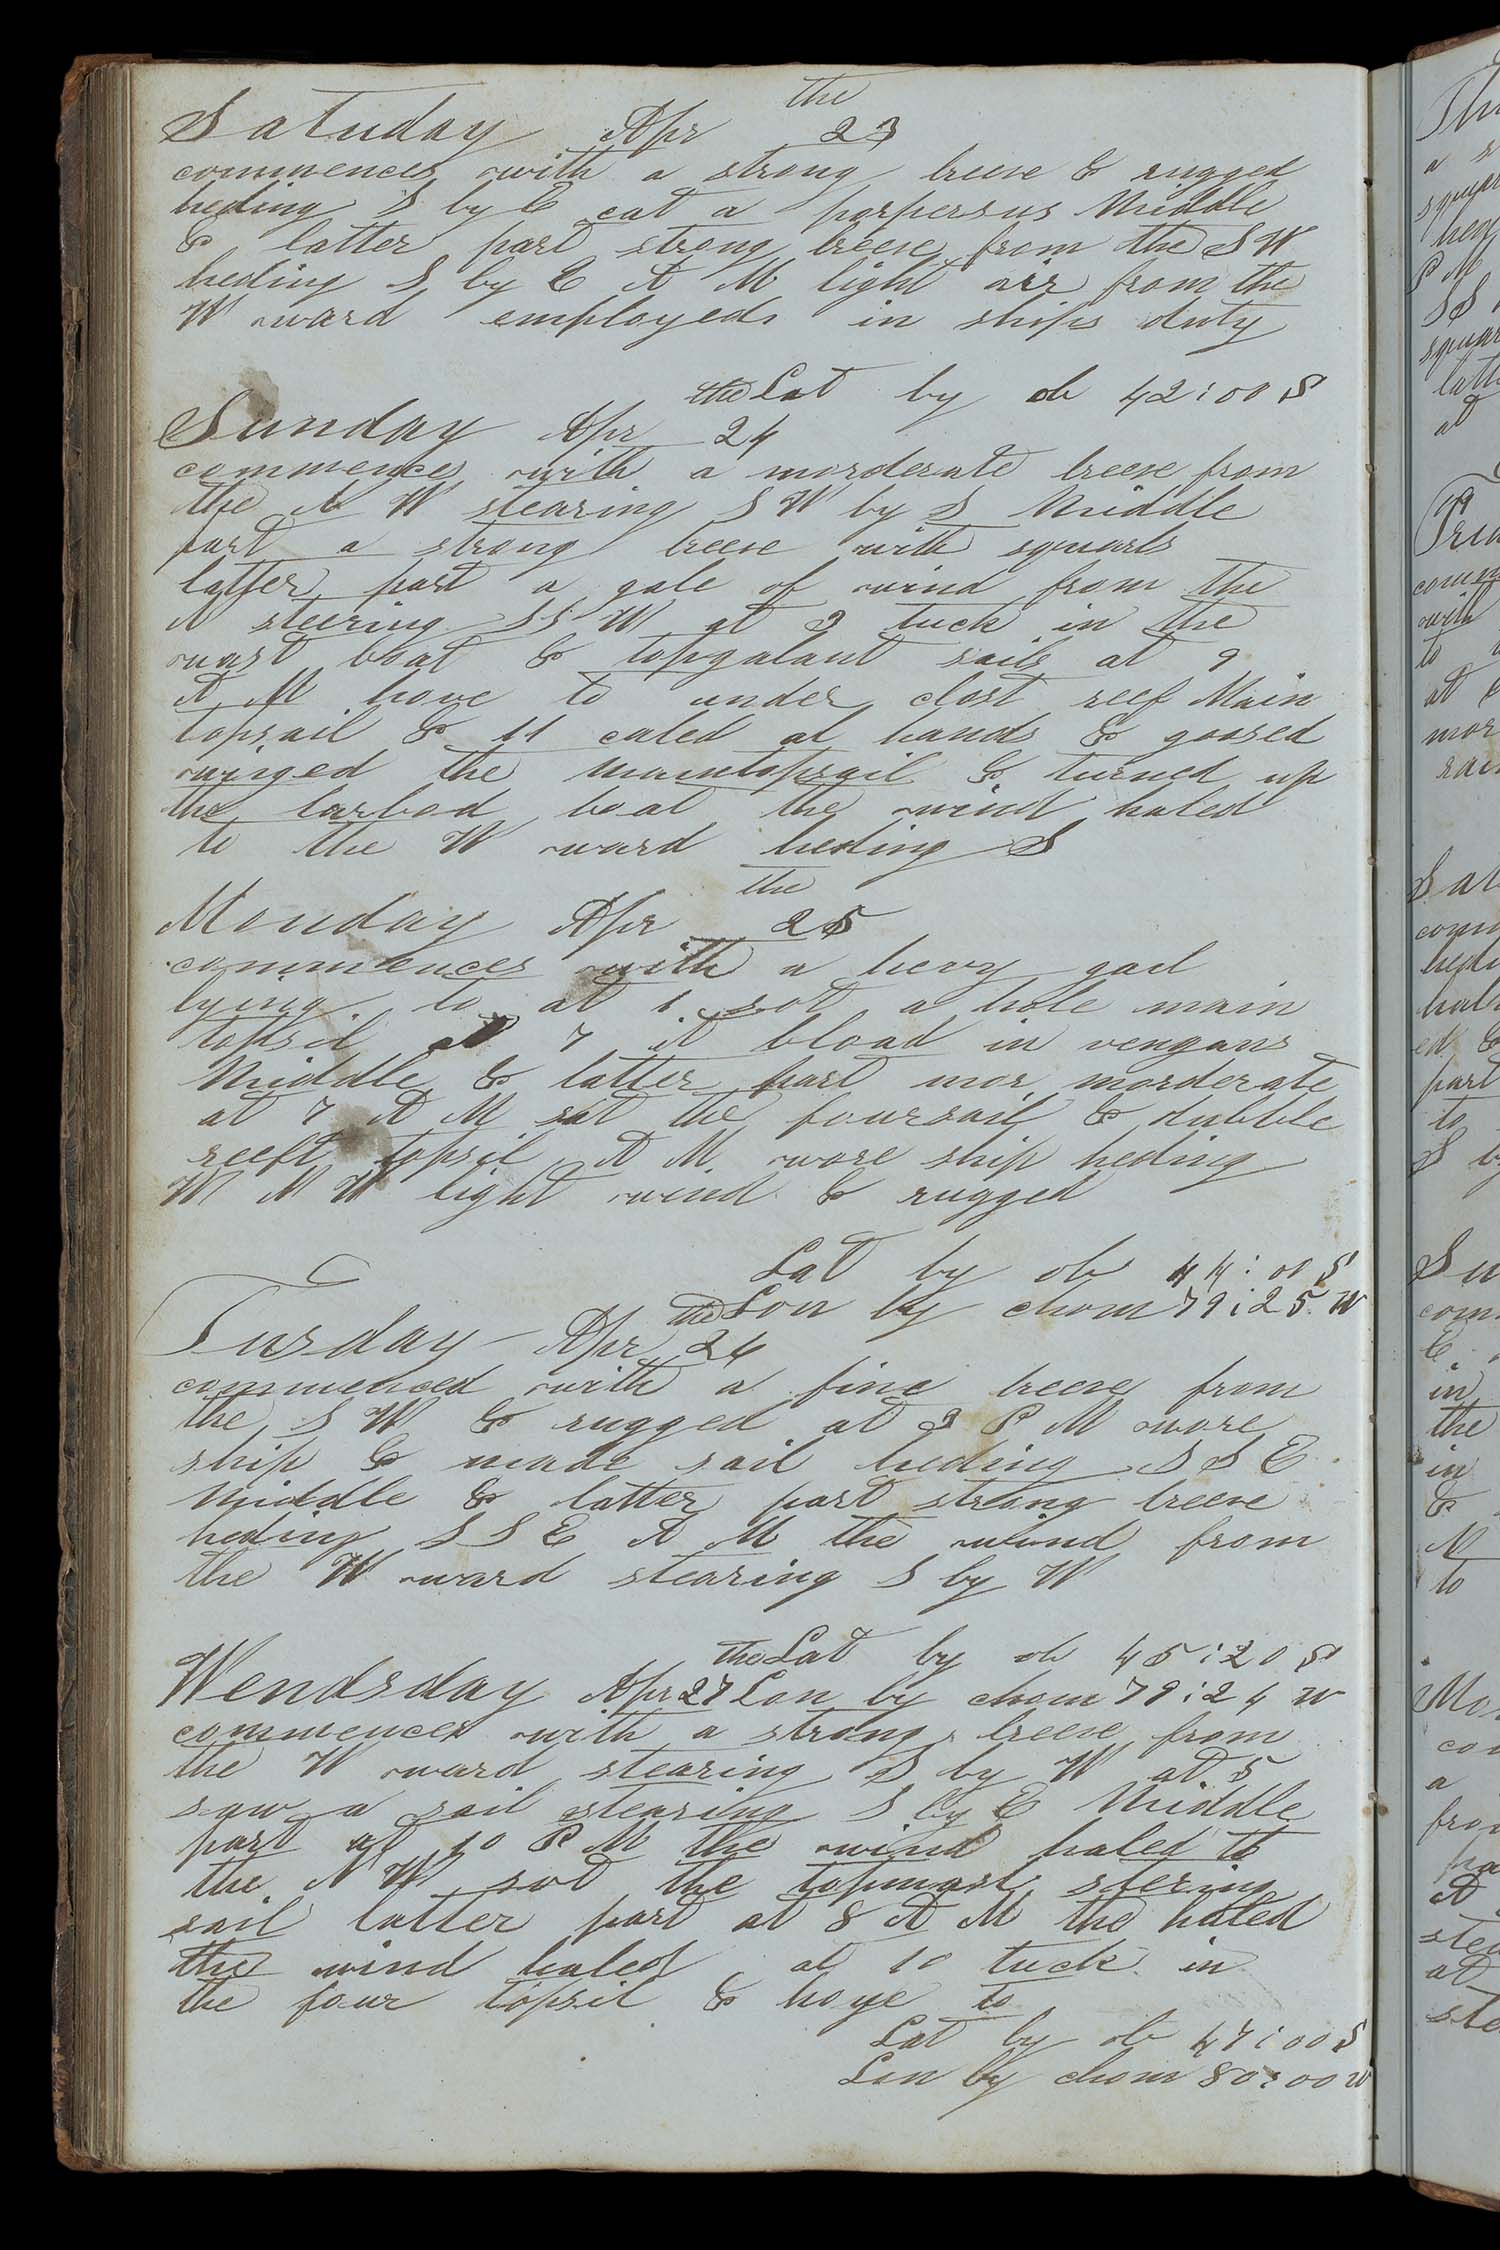 the
Satuday Apr 23
commences with a strong breese & rugged
heding S by E cat a porpersus Middle
& latter part strong breese from the S W
heding S by E A M light air from the
W ward employed in ships duty
the Lat by ob 42:00 S
Sunday Apr 24
commences with a morderate breese from
the N W stearing S W by S Middle
part a strong breese with squarls
latter part a gale of wind from the
N steering S S W at 3 tuck in the
wast boat & topgalant sails at 9
A M hove to under clost reef Main
topsail & 11 caled al hands & goosed
winged the maintopsail & turned up
the larbod boat the wind haled
to the W ward heding S
the
Monday Apr 25
commences with a hevy gail
lying to at 1 sot a hole main
topsil at 7 it bload in vengans
Middle & latter part mor morderate
at 7 A M sat the foursail & dubble
reeft topsil A M wore ship heding
W N W light wind & rugged
Lat by ob 44:00 S
the Lon by chom 79:25 W
Tusday Apr 26
commenced with a fine breese from
the S W & rugged at 3 P M wore
ship & made sail heding S S E
Middle & latter part strong breese
heding S S E A M the wind from
the W ward stearing S by W
the Lat by ob 45:20 S
Wendsday Apr 27 Lon by chom 79:24 W
commences with a strong breese from
the W ward stearing S by W at 5
saw a sail stearing S by E Middle
part at 10 P M the wind haled to
the N W sot the topmast stering
sail latter part at 8 A M the haled
the wind haled at 10 tuck in
the four topsil & hove to
Lat by ob 47:00 S
Lon by chom 80:00 W